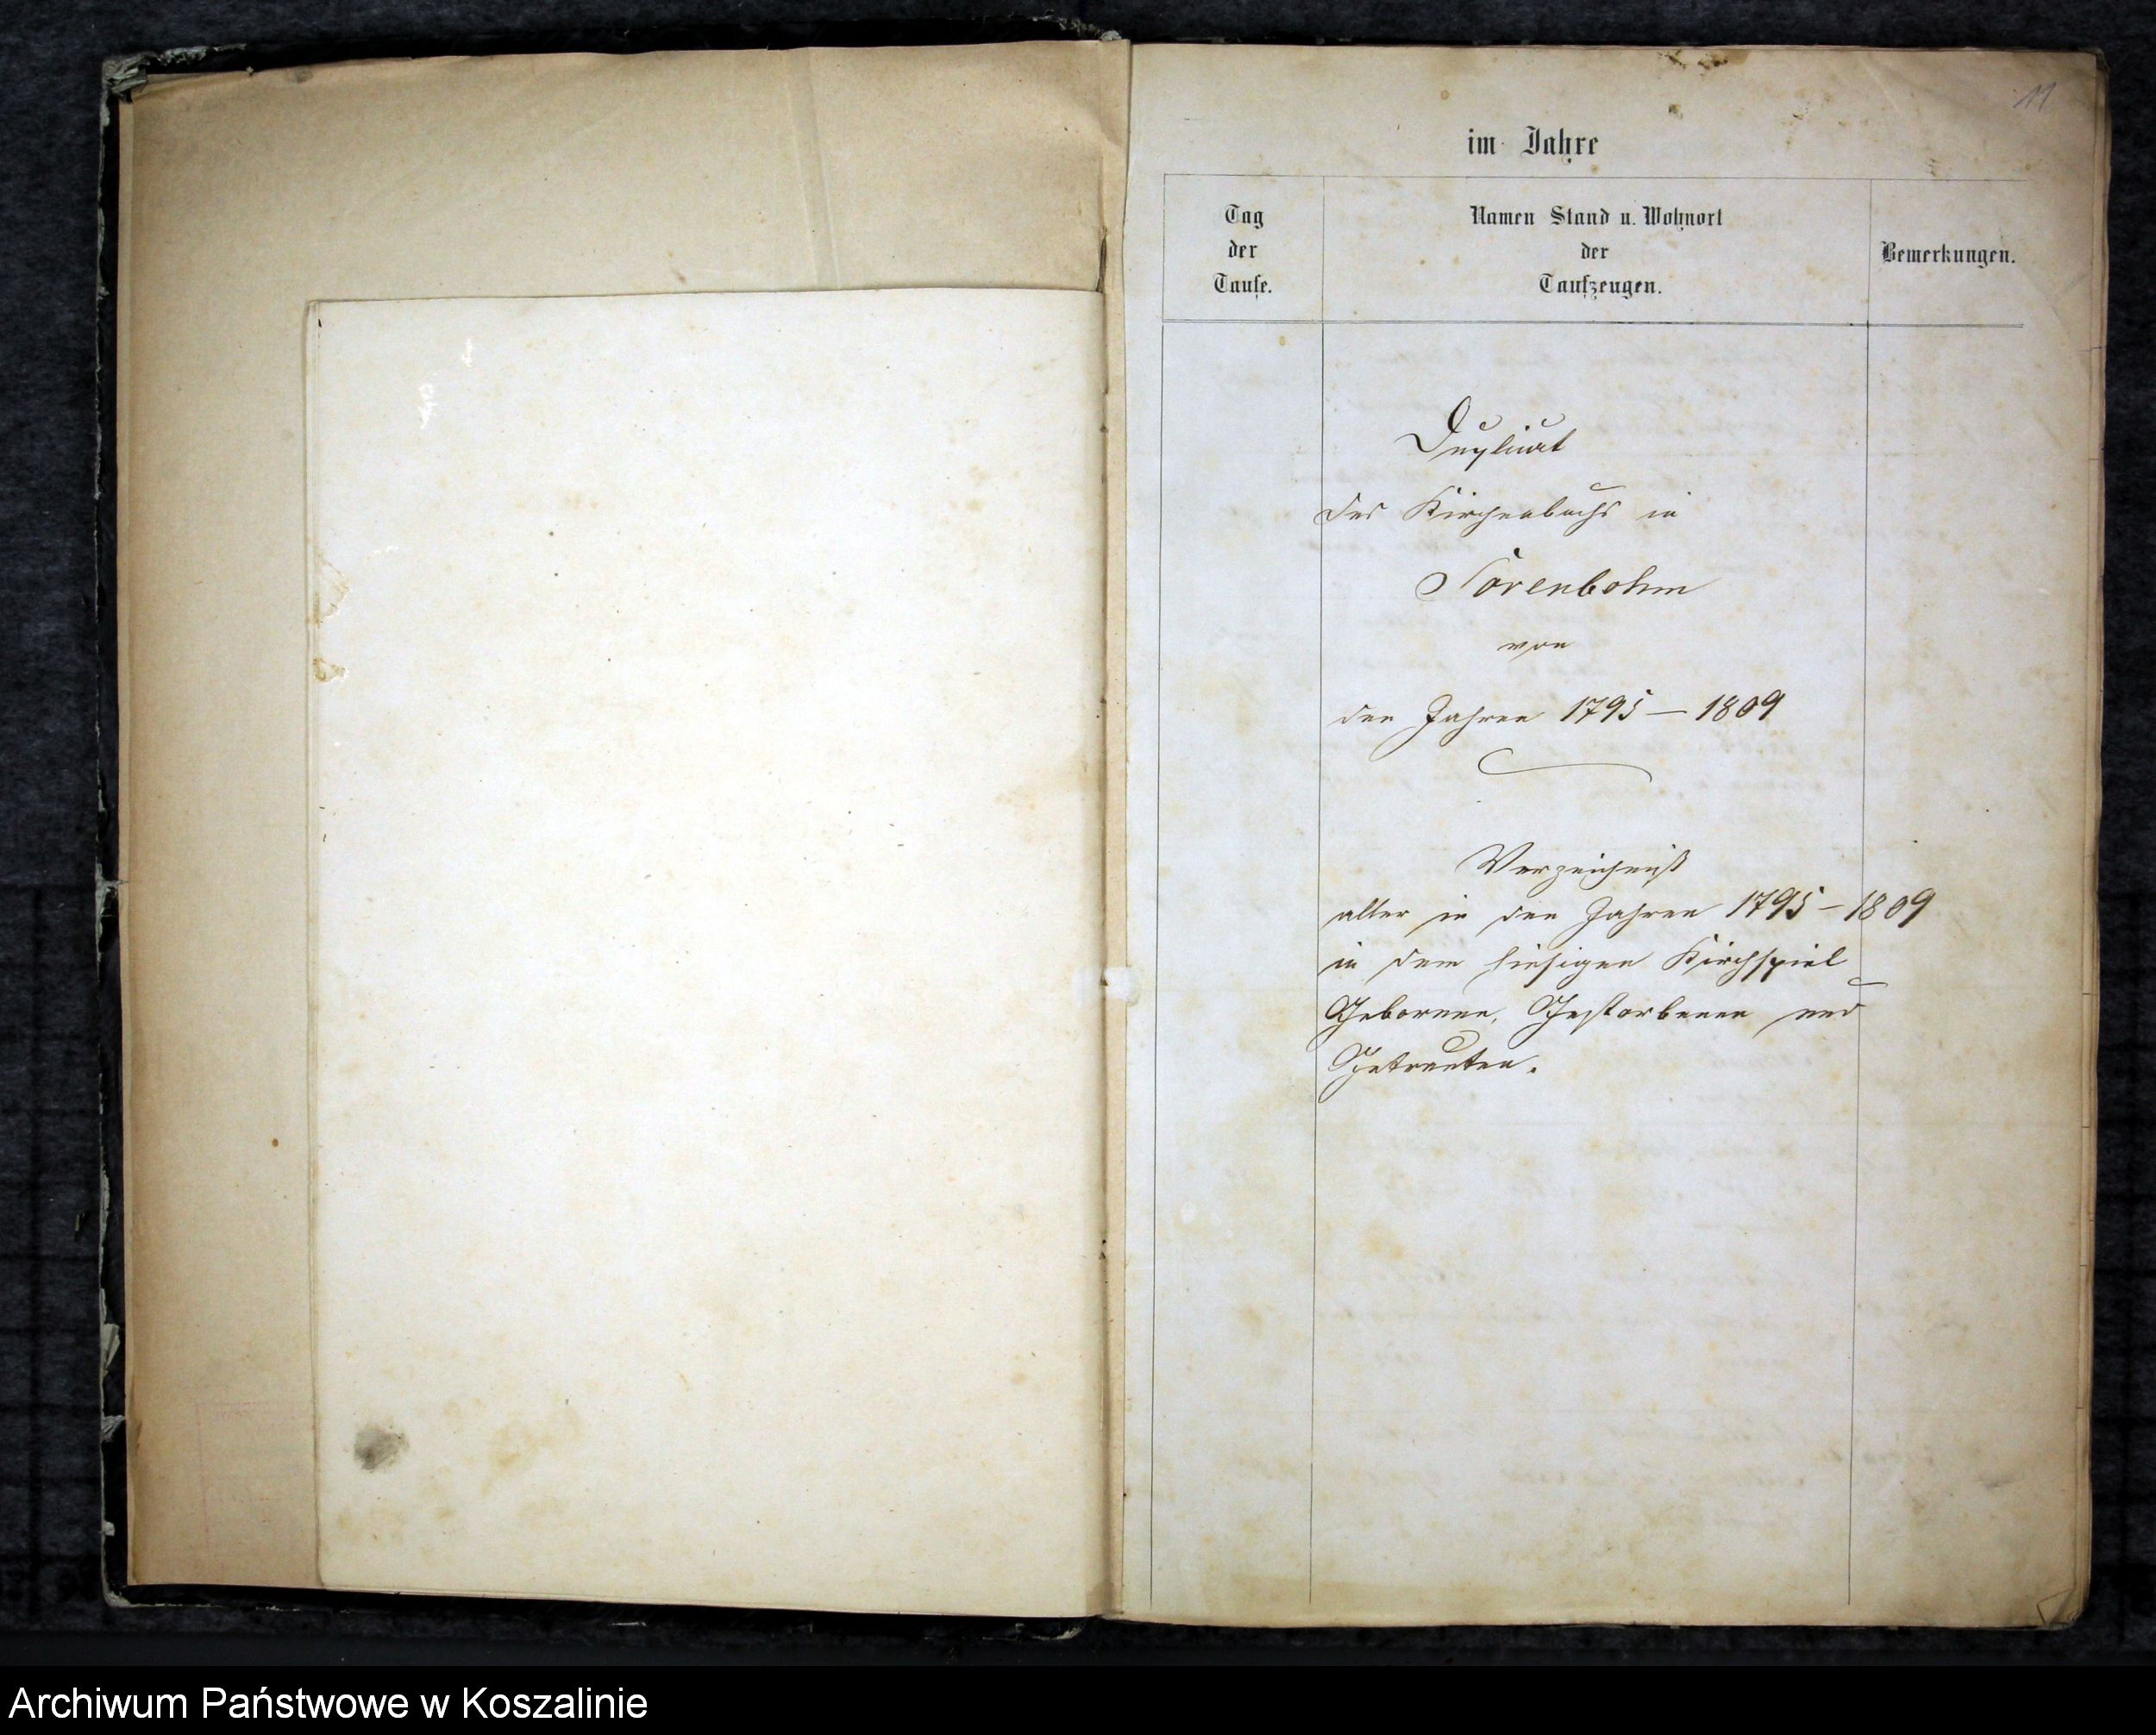 11
im Jahre
Tag
der
Taufe.
Namen Stand u. Wohnort
der
Taufzeugen.
Bemerkungen.
Duplicat
des Kirchenbuchs in
Sorenbohm
von
den Jahren 1795 — 1809
Verzeichniß
aller in den Jahren 1795 – 1809
in dem hiesigen Kirchspiel
Geborenen, Gestorbenen und
Getrauten.
Archiwum Państwowe w Koszalinie